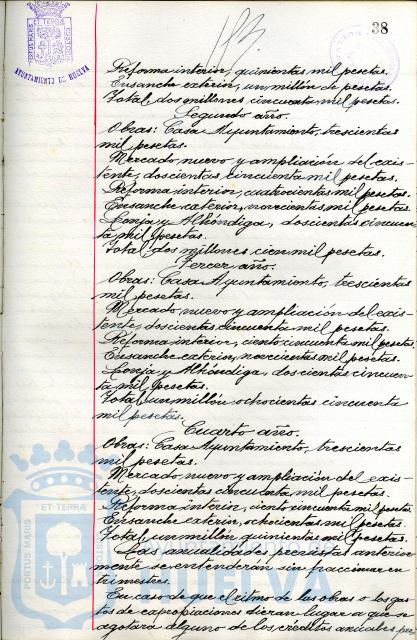 38
AYUNTAMIENTO DE HUELVA
Reforma interior, quinientas mil pesetas.
Ensanche exterior, un millón de pesetas.
Total, dos millones, cincuenta mil pesetas.
Segundo año.
Obras: Casa Ayuntamiento, trescientas
mil pesetas.
Mercado, nuevo y ampliación del exis-
tente, doscientas cincuenta mil pesetas.
Reforma interior, cuatrocientas mil pesetas.
Ensanche exterior, novecientas mil pesetas.
Lonja y Alhóndiga, doscientas cincuen-
ta mil pesetas.
Total dos millones cien mil pesetas.
Tercer año.
Obras: Casa Ayuntamiento, trescientas
mil pesetas.
Mercado, nuevo y ampliación del exis-
tente, doscientas cincuenta mil pesetas.
Reforma interior, ciento cincuenta mil pesetas.
Ensanche exterior, novecientas mil pesetas.
Lonja y Alhóndiga, doscientas cincuen-
ta mil pesetas.
Total un millón ochocientas cincuenta
mil pesetas.
Cuarto año.
Obras: Casa Ayuntamiento, trescientas
mil pesetas.
Mercado, nuevo y ampliación del exis-
tente, doscientas cincuenta mil pesetas.
Reforma interior, ciento cincuenta mil pesetas.
Ensanche exterior, ochocientas mil pesetas.
Total, un millón quinientas mil pesetas.
Las anualidades previstas anterior-
mente se entenderán sin fraccionar en
trimestres.
En caso de que el ritmo de las obras o los gas-
tos de expropiaciones dieran lugar a que se
agotara alguno de los créditos anuales
PORTUS MARIS
ET TERRÆ
HUELVA